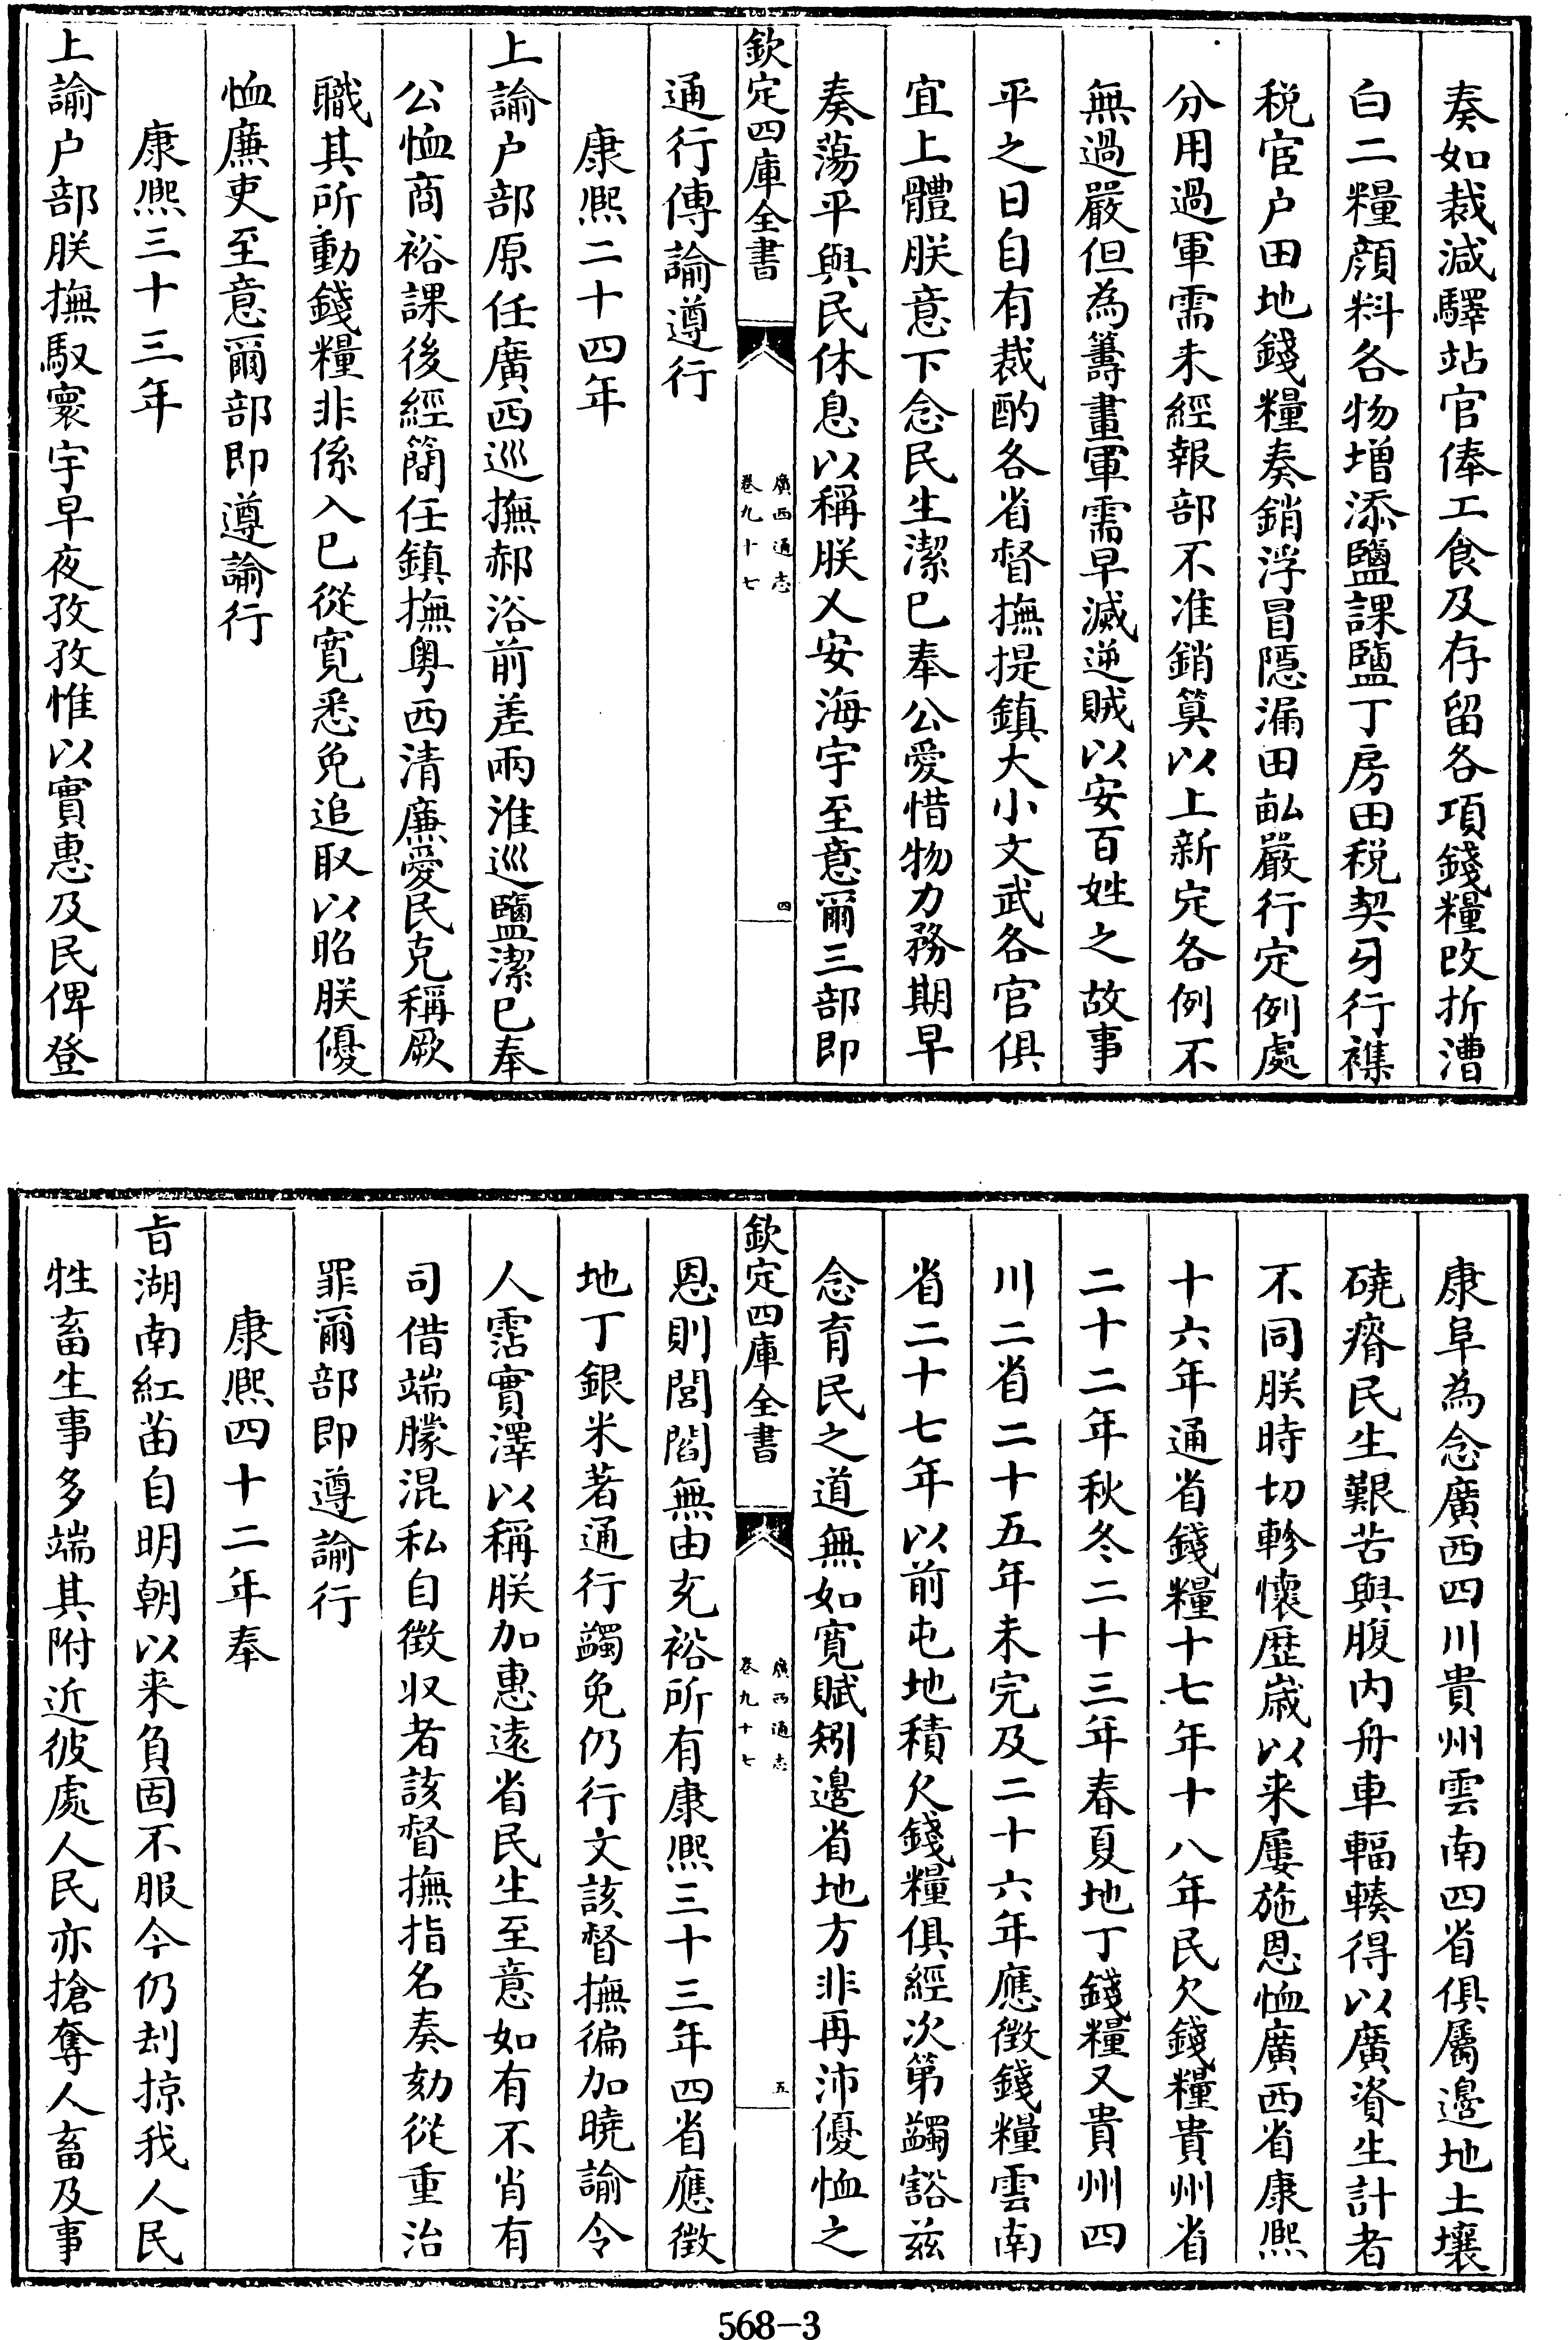 奏如裁減驛站官俸工食及存留各項錢糧改折漕
白二糧顔料各物增添鹽課鹽丁房田税契牙行襍
税宦户田地錢糧奏銷浮冒隠漏田畝嚴行定例處
分用過軍需未經報部不准銷算以上新定各例不
無過嚴但為籌畫軍需早滅逆賊以安百姓之故事
平之日自有裁酌各省督撫提鎮大小文武各官俱
宜上體朕意下念民生潔已奉公愛惜物力務期早
奏蕩平與民休息以稱朕乂安海宇至意爾三部即
欽定四庫全書
廣西通志
卷九十七
四
通行傳諭遵行
康熙二十四年
上諭户部原任廣西巡撫郝浴前差兩淮巡鹽潔已奉
公恤商裕課後經簡任鎮撫粤西清廉愛民克稱厥
職其所動錢糧非係入已從寛悉免追取以昭朕優
恤廉吏至意爾部即遵諭行
康熙三十三年
上諭户部朕撫馭寰宇早夜孜孜惟以實惠及民俾登
康阜為念廣西四川貴州雲南四省俱屬邊地土壤
磽瘠民生艱苦與腹内舟車輻輳得以廣資生計者
不同朕時切軫懷歴嵗以來屢施恩恤廣西省康熙
十六年通省錢糧十七年十八年民欠錢糧貴州省
二十二年秋冬二十三年春夏地丁錢糧又貴州四
川二省二十五年未完及二十六年應徴錢糧雲南
省二十七年以前屯地積欠錢糧俱經次第蠲豁兹
念育民之道無如寛賦矧邊省地方非再沛優恤之
欽定四庫全書
廣西通志
卷九十七
五
恩則閭閻無由充裕所有康熙三十三年四省應徴
地丁銀米著通行蠲免仍行文該督撫徧加曉諭令
人霑實澤以稱朕加惠遠省民生至意如有不肖有
司借端朦混私自徴收者該督撫指名奏劾從重治
罪爾部即遵諭行
康熙四十二年奉
㫖湖南紅苗自明朝以来負固不服今仍刦掠我人民
牲畜生事多端其附近彼處人民亦搶奪人畜及事
568-3